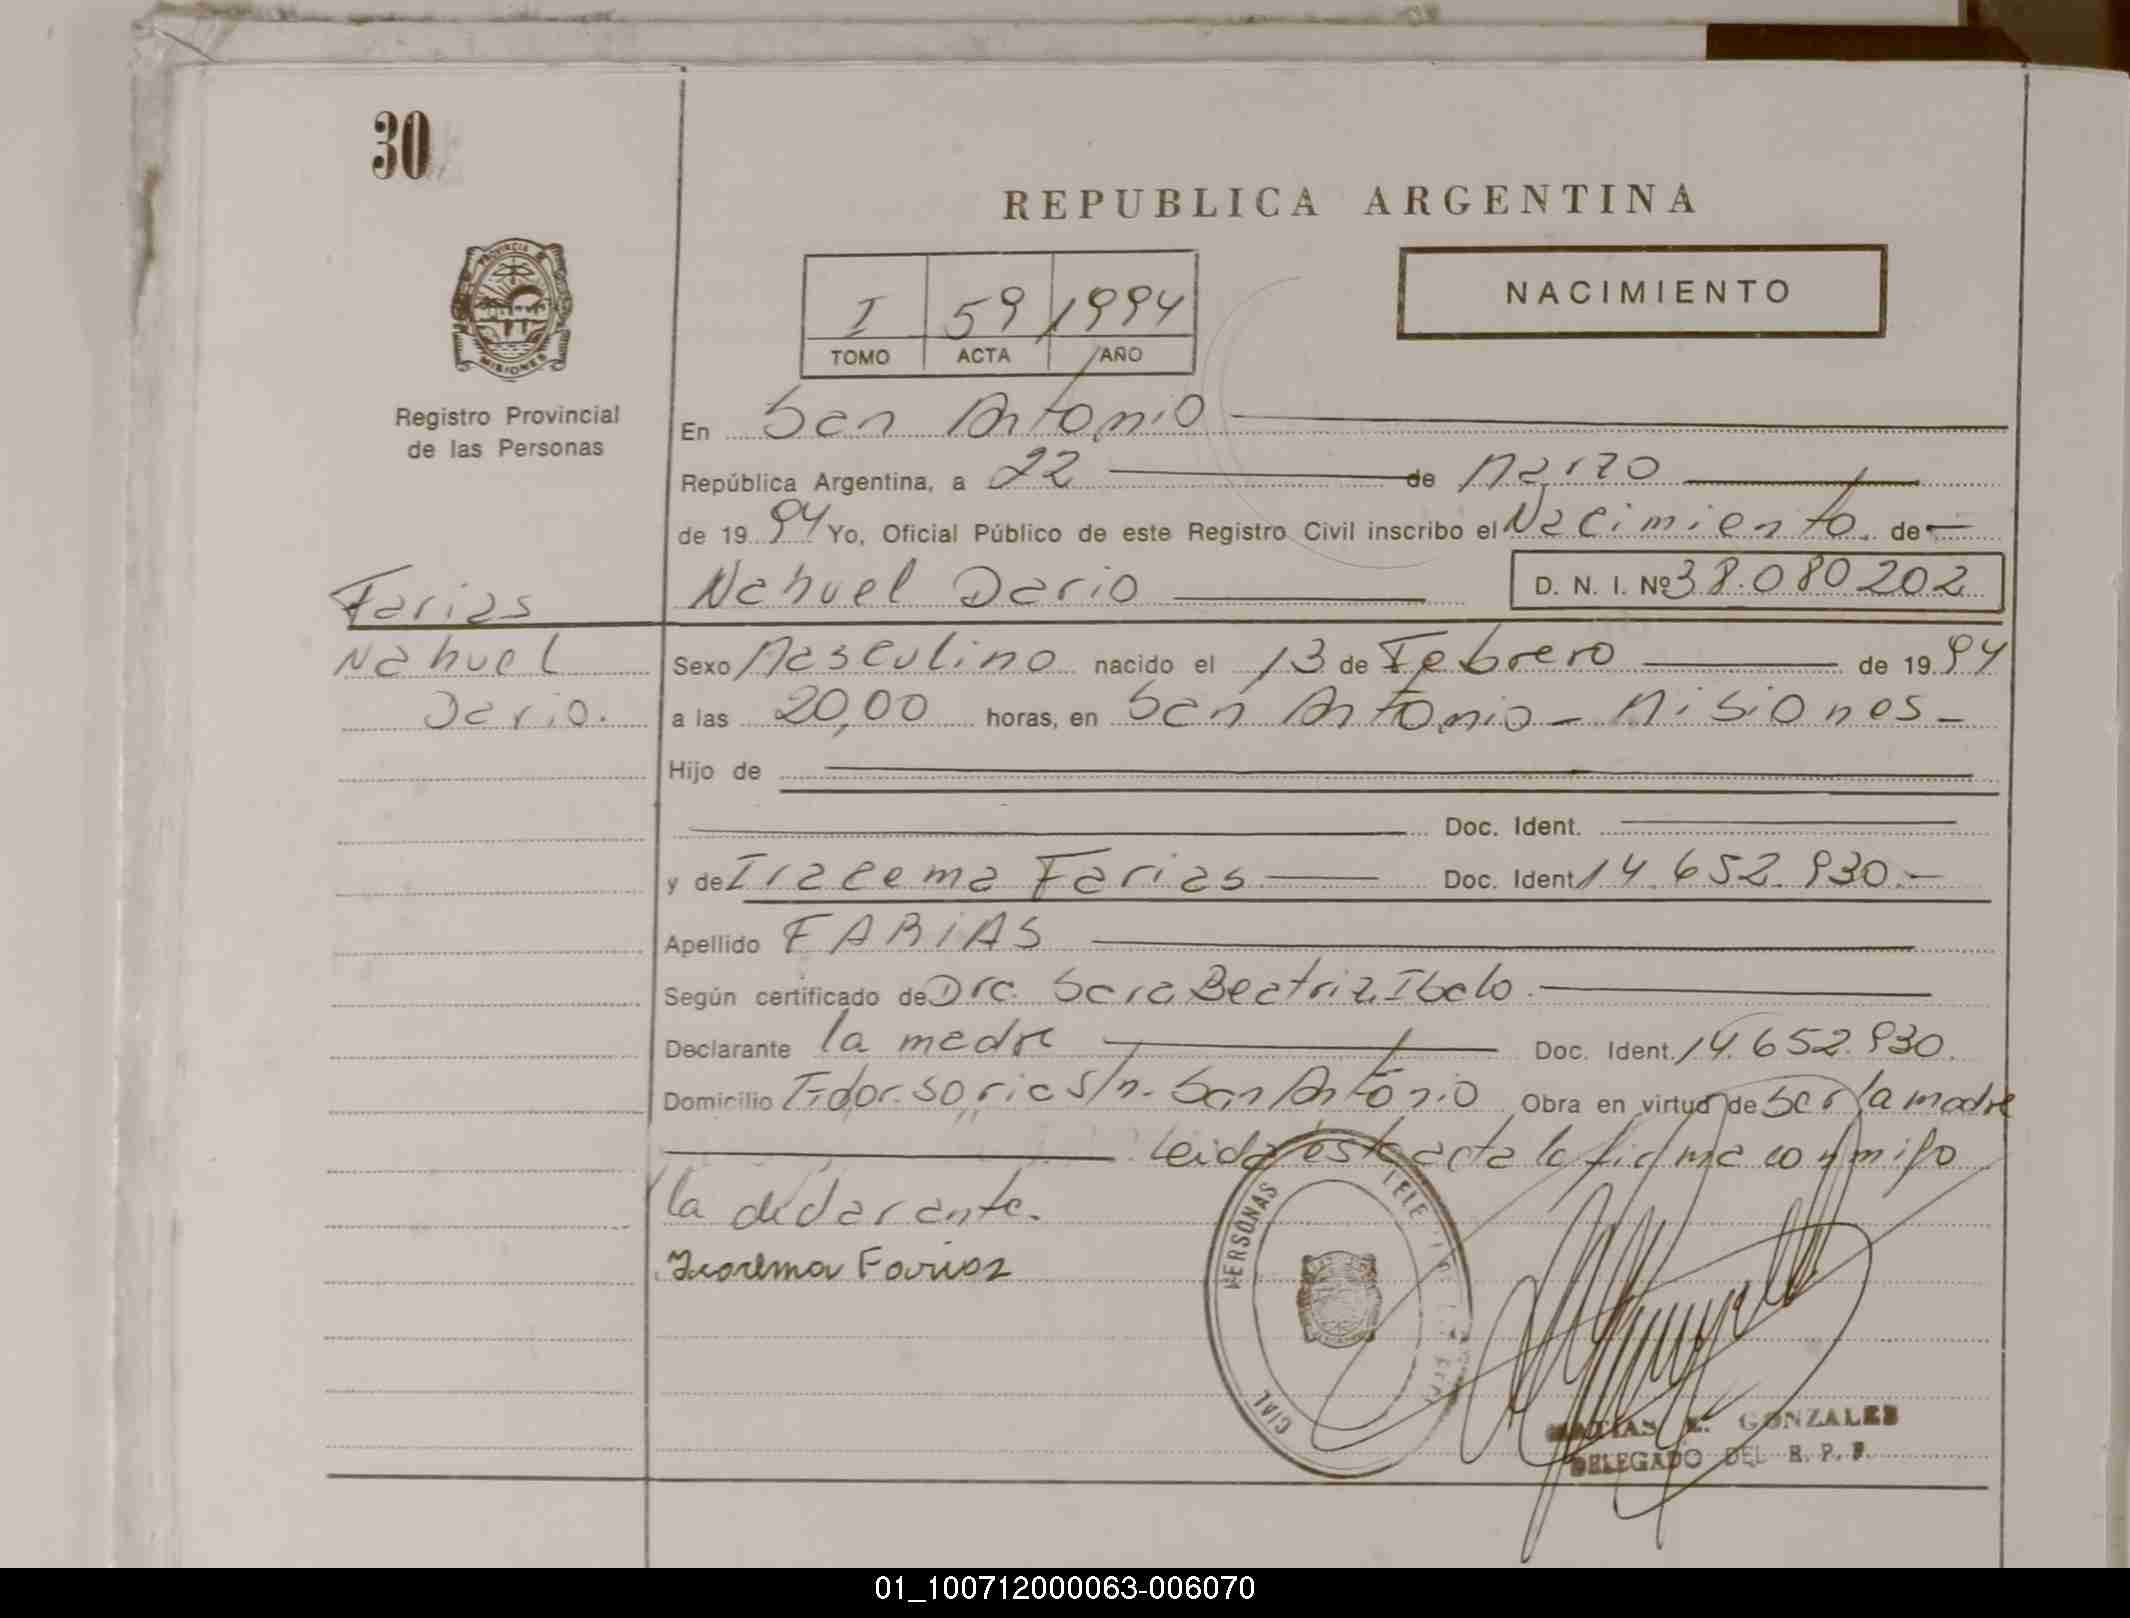 30
REPUBLICA ARGENTINA
NACIMIENTO
I 59 1994
TOMO ACTA AÑO
PROVINCIA DE
MISIONES
Registro Provincial
de las Personas
En San Antonio
República Argentina, a 22 de Marzo
de 1994 Yo, Oficial Público de este Registro Civil inscribo el Nacimiento de
Nahuel Dario D. N. I. Nº 38.080202
Farias
Nahuel
Dario.
Sexo Masculino nacido el 13 de Febrero de 1994
a las 20,00 horas, en San Antonio - Misiones -
Hijo de
Doc. Ident.
y de Iracema Farias Doc. Ident 14.652.930.-
Apellido FARIAS
Según certificado de Dra. Sara Beatriz Ibalo.
Declarante la madre Doc. Ident. 14.652.930.
Domicilio s/n. San Antonio Obra en virtud de ser la madre
Leida esta acta la firma conmigo
la declarante.
Iracema Farias
PERSONAS
CIAL
MATIAS E. GONZALES
DELEGADO DEL R. P. P.
01_100712000063-006070